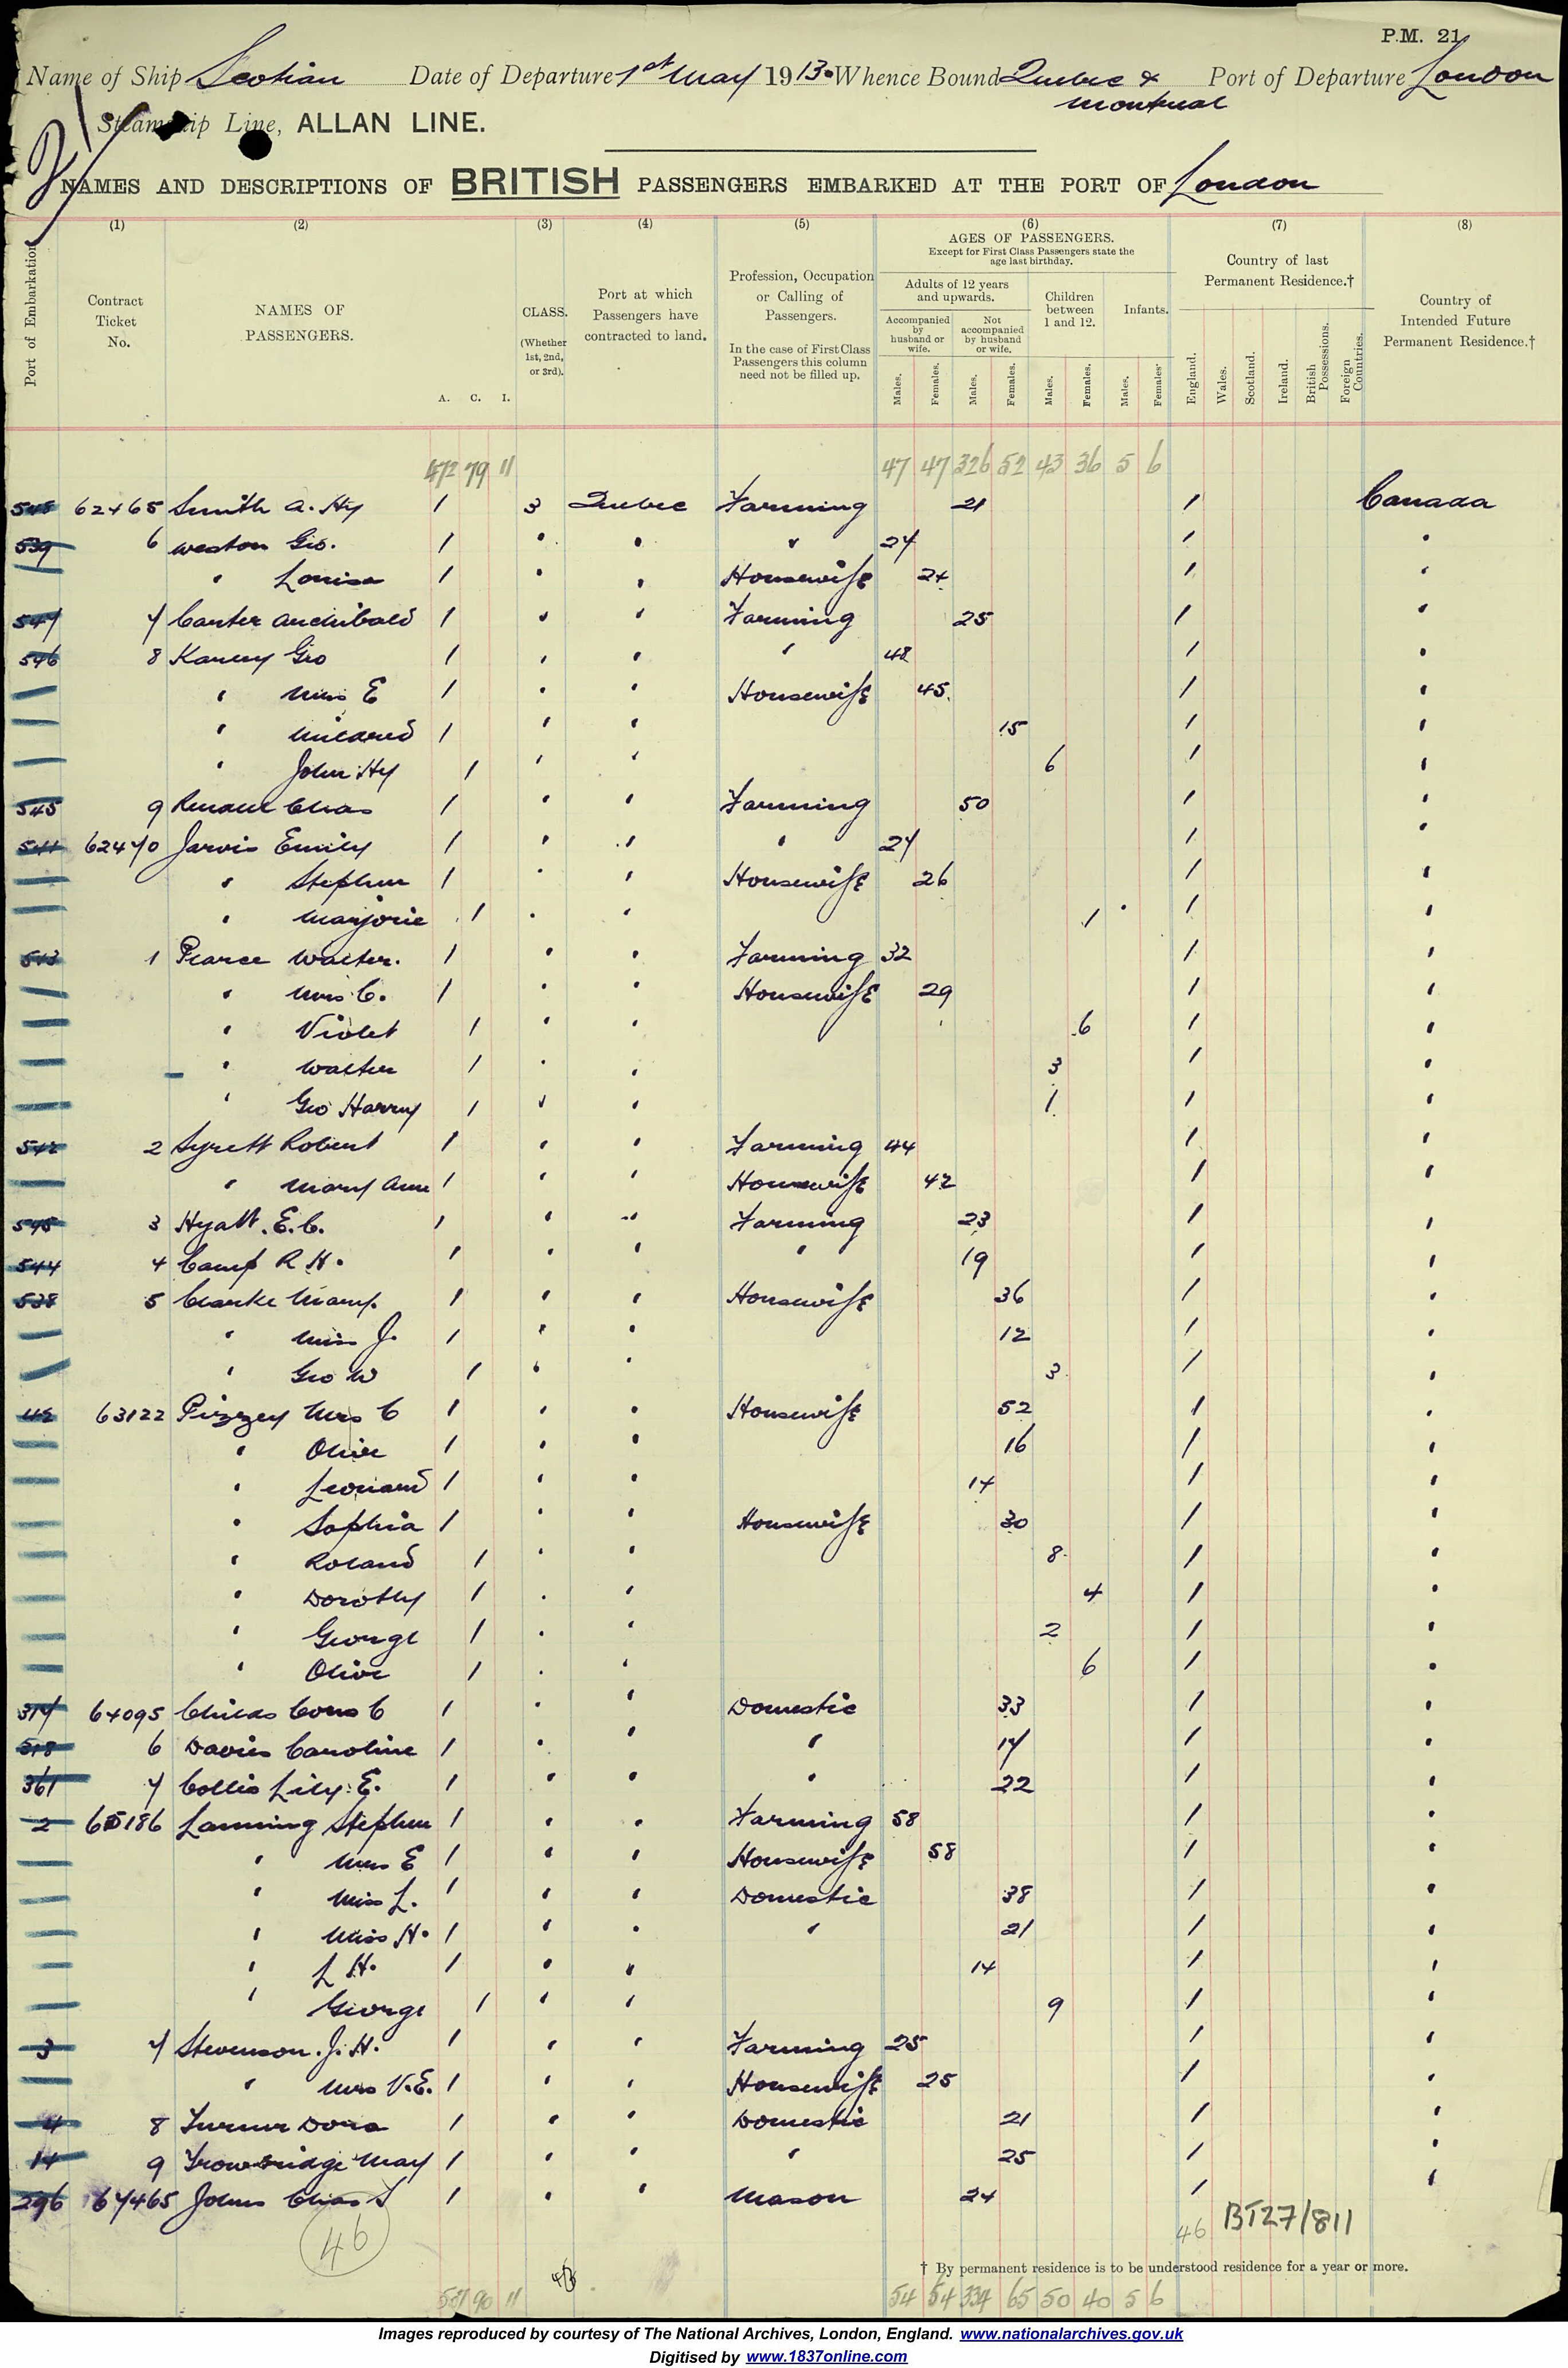 P.M. 21
Name of Ship Scotian Date of Departure 1st May 1913. Whence Bound Quebec & Port of Departure London
Montreal
Steamship Line, ALLAN LINE.
NAMES AND DESCRIPTIONS OF BRITISH PASSENGERS EMBARKED AT THE PORT OF London
(1) (2) (3) (4) (5) (6) (7) (8)
Port of Embarkation
Contract Ticket No.
NAMES OF PASSENGERS.
A. C. I.
CLASS. (Whether 1st, 2nd, or 3rd).
Port at which Passengers have contracted to land.
Profession, Occupation or Calling of Passengers.
In the case of First Class Passengers this column need not be filled up.
AGES OF PASSENGERS.
Except for First Class Passengers state the age last birthday.
Adults of 12 years and upwards.
Accompanied by husband or wife.
Not accompanied by husband or wife.
Children between 1 and 12.
Infants.
Males. Females. Males. Females. Males. Females. Males. Females.
Country of last Permanent Residence.†
England. Wales. Scotland. Ireland. British Possessions. Foreign Countries.
Country of Intended Future Permanent Residence.†
472 79 11 47 47 326 52 43 36 5 6
62465 Smith A. Hy 1 3 Quebec Farming 21 1 Canada
539 6 Weston Geo. 1 " " " 24 1 "
" Louisa 1 " " Housewife 24 1 "
547 7 Carter Archibald 1 " " Farming 25 1 "
546 8 Geo 1 " " " 48 1 "
" Mrs E 1 " " Housewife 45 1 "
" Mildred 1 " " 15 1 "
" John Hy 1 " " 6 1 "
545 9 Chas 1 " " Farming 50 1 "
541 62470 Jarvis Emily 1 " " " 27 1 "
" Stephen 1 " " Housewife 26 1 "
" Marjorie 1 " " 1 1 "
543 1 Pearce Walter. 1 " " Farming 32 1 "
" Mrs C. 1 " " Housewife 29 1 "
" Violet 1 " " 6 1 "
" Walter 1 " " 3 1 "
" Geo Harry 1 " " 1 1 "
542 2 Syrett Robert 1 " " Farming 44 1 "
" Mary Ann 1 " " Housewife 42 1 "
3 Hyatt. E. C. 1 " " Farming 23 1 "
544 4 Camp R H. 1 " " " 19 1 "
538 5 Clarke Mary. 1 " " Housewife 36 1 "
" Miss J. 1 " " 12 1 "
" Geo W 1 " " 3 1 "
63122 Pizzey Mrs C 1 " " Housewife 52 1 "
" Olive 1 " " 16 1 "
" Leonard 1 " " 14 1 "
" Sophia 1 " " Housewife 30 1 "
" Roland 1 " " 8 1 "
" Dorothy 1 " " 4 1 "
" George 1 " " 2 1 "
" Olive 1 " " 6 1 "
317 64095 Childs C 1 " " Domestic 33 1 "
518 6 Davies Caroline 1 " " " 17 1 "
361 7 Collis Lily. E. 1 " " " 22 1 "
2 65186 Lanning Stephen 1 " " Farming 58 1 "
" Mrs E 1 " " Housewife 58 1 "
" Miss L. 1 " " Domestic 38 1 "
" Miss H. 1 " " " 21 1 "
" L H. 1 " " 14 1 "
" George 1 " " 9 1 "
3 7 Stevenson. J. H. 1 " " Farming 25 1 "
" Mrs V.E. 1 " " Housewife 25 1 "
4 8 Turner Dora 1 " " Domestic 21 1 "
14 9 Trowbridge May 1 " " " 25 1 "
296 67465 Johns Chas S 1 " " Mason 24 1 "
46 46 BT27/811
† By permanent residence is to be understood residence for a year or more.
507 90 11 54 54 334 65 50 40 5 6
Images reproduced by courtesy of The National Archives, London, England. www.nationalarchives.gov.uk
Digitised by www.1837online.com